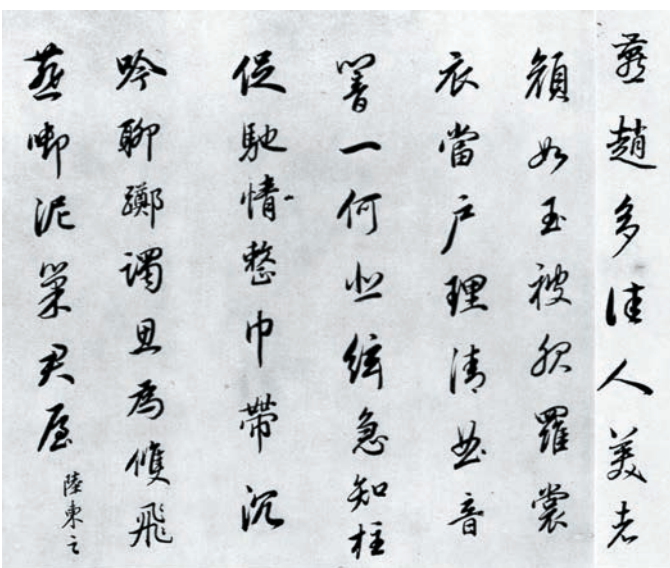 燕趙多佳人美者
顏如玉被服羅裳
衣當户理清曲音
響一何悲絃急知柱
促馳情整巾帶沉
吟聊躑躅思為雙飛
燕啣泥巢君屋
陸柬之